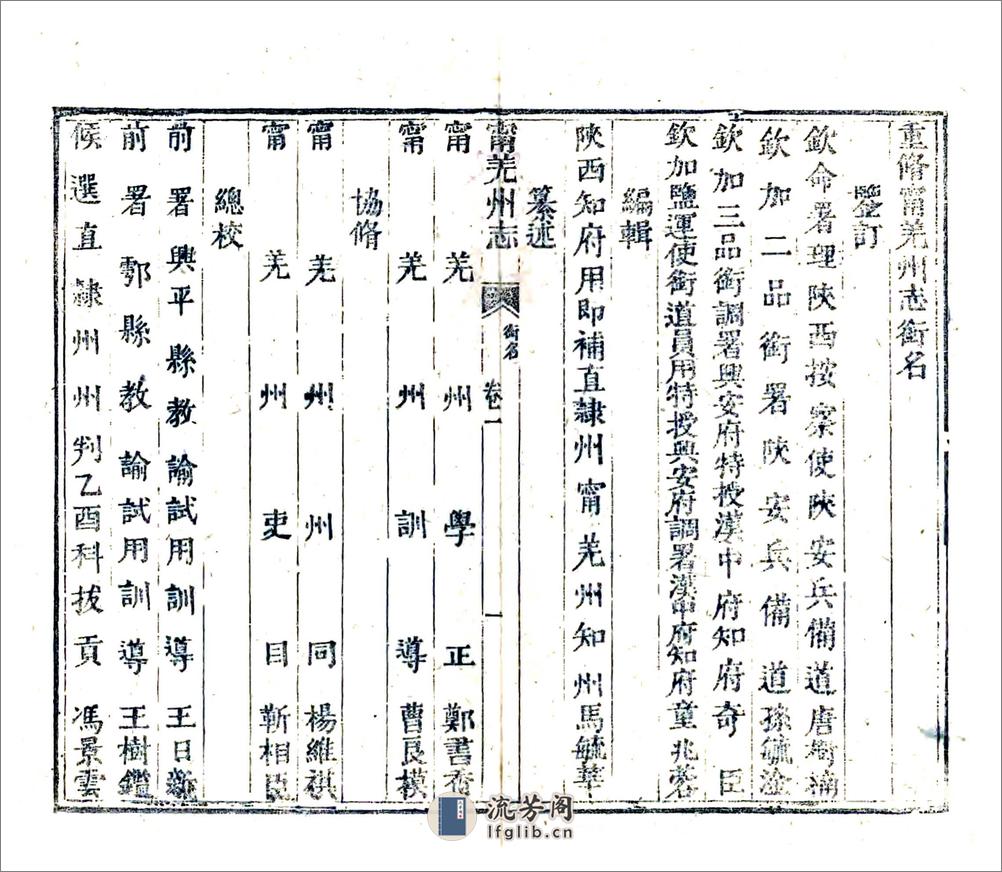 重脩甯羌州志銜名
鑒訂
欽命署理陝西按察使陝安兵備道唐樹楠
欽加二品銜署陝安兵備道孫毓
欽加三品銜調署興安府特授漢中府知府奇臣
欽加鹽運使銜道員用特授興安府調署漢中府知府童兆蓉
編輯
陝西知府用即補直隸州甯羌州知州馬毓華
纂述
甯羌州志
銜名
卷一
一
甯羌州學正鄭書香
甯羌州訓導曹良模
協脩
甯羌州州同楊維祺
甯羌州吏目靳相臣
總校
前署興平縣教諭試用訓導王日新
前署鄠縣教諭試用訓導王樹鑑
候選直隸州州判乙酉科拔貢馮景雲
流芳阁
lfglib.cn